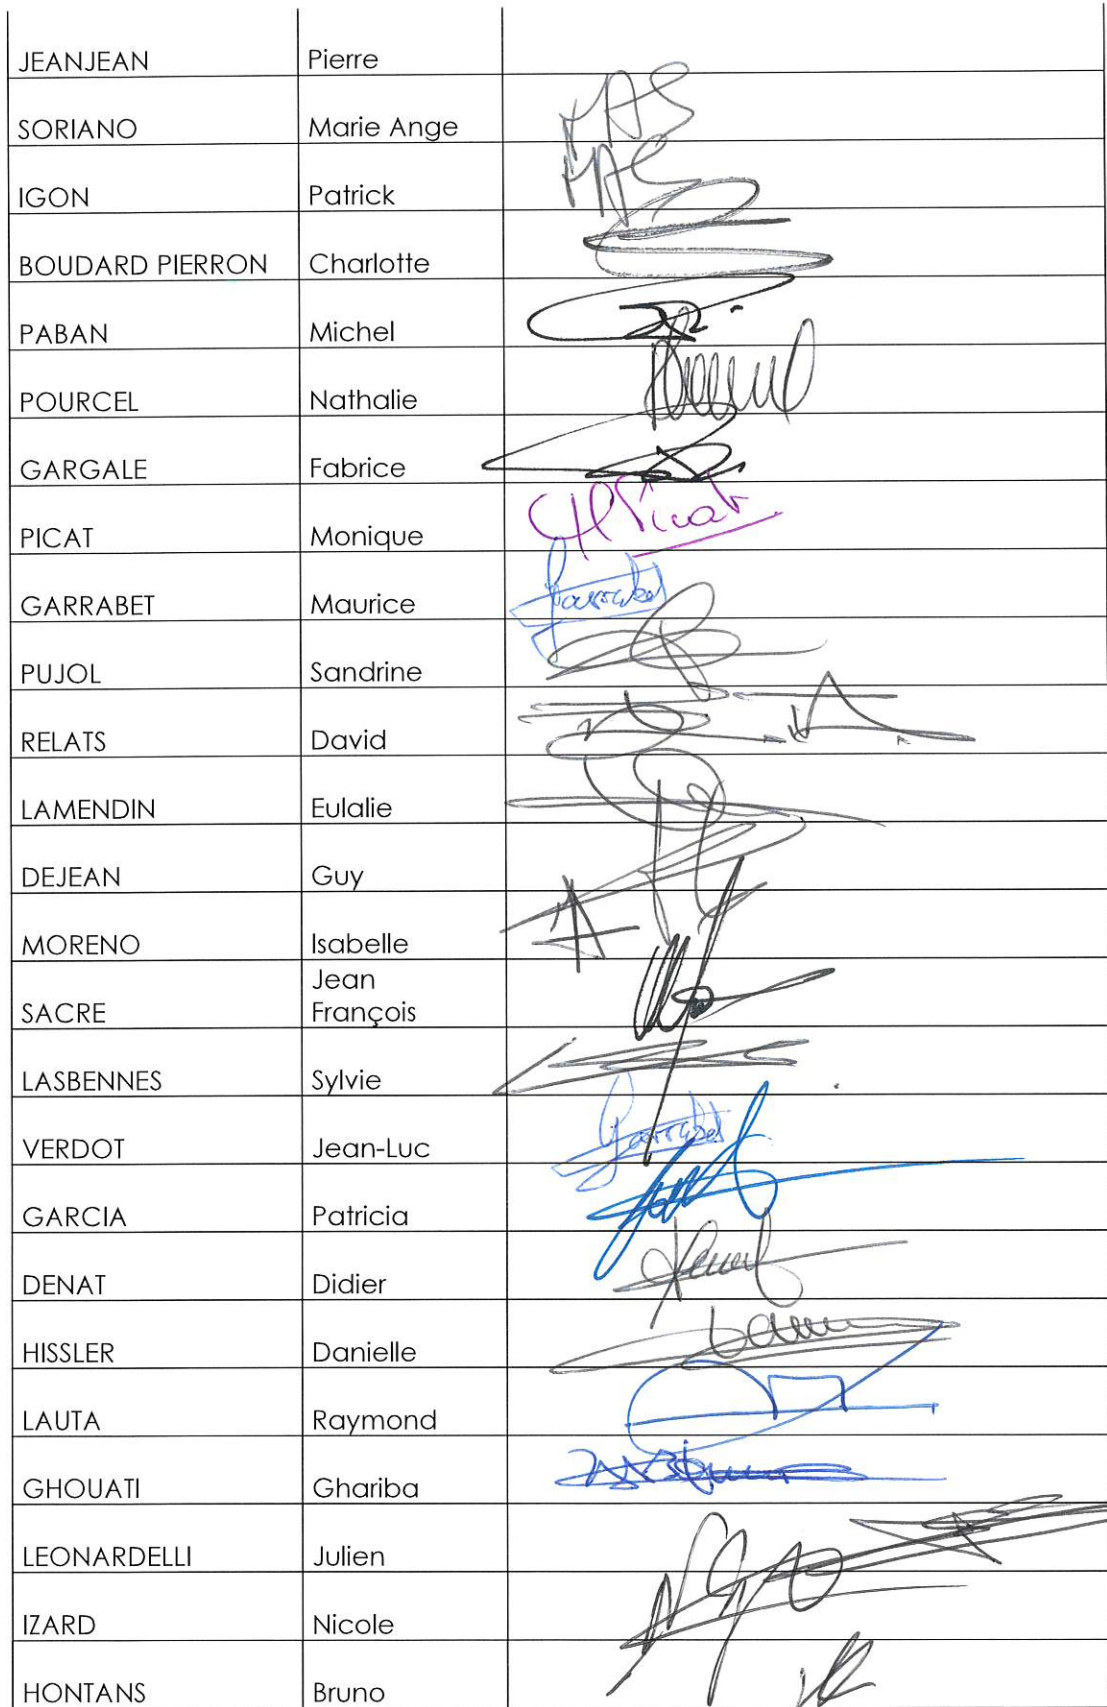 JEANJEAN Pierre
SORIANO Marie Ange MAS
IGON Patrick MAS
BOUDARD PIERRON Charlotte
PABAN Michel
POURCEL Nathalie
GARGALE Fabrice
PICAT Monique Picat
GARRABET Maurice Garrabet
PUJOL Sandrine
RELATS David
LAMENDIN Eulalie
DEJEAN Guy
MORENO Isabelle
Jean
SACRE François
LASBENNES Sylvie
VERDOT Jean-Luc Garrabet
GARCIA Patricia
DENAT Didier
HISSLER Danielle
LAUTA Raymond
GHOUATI Ghariba
LEONARDELLI Julien
IZARD Nicole
HONTANS Bruno